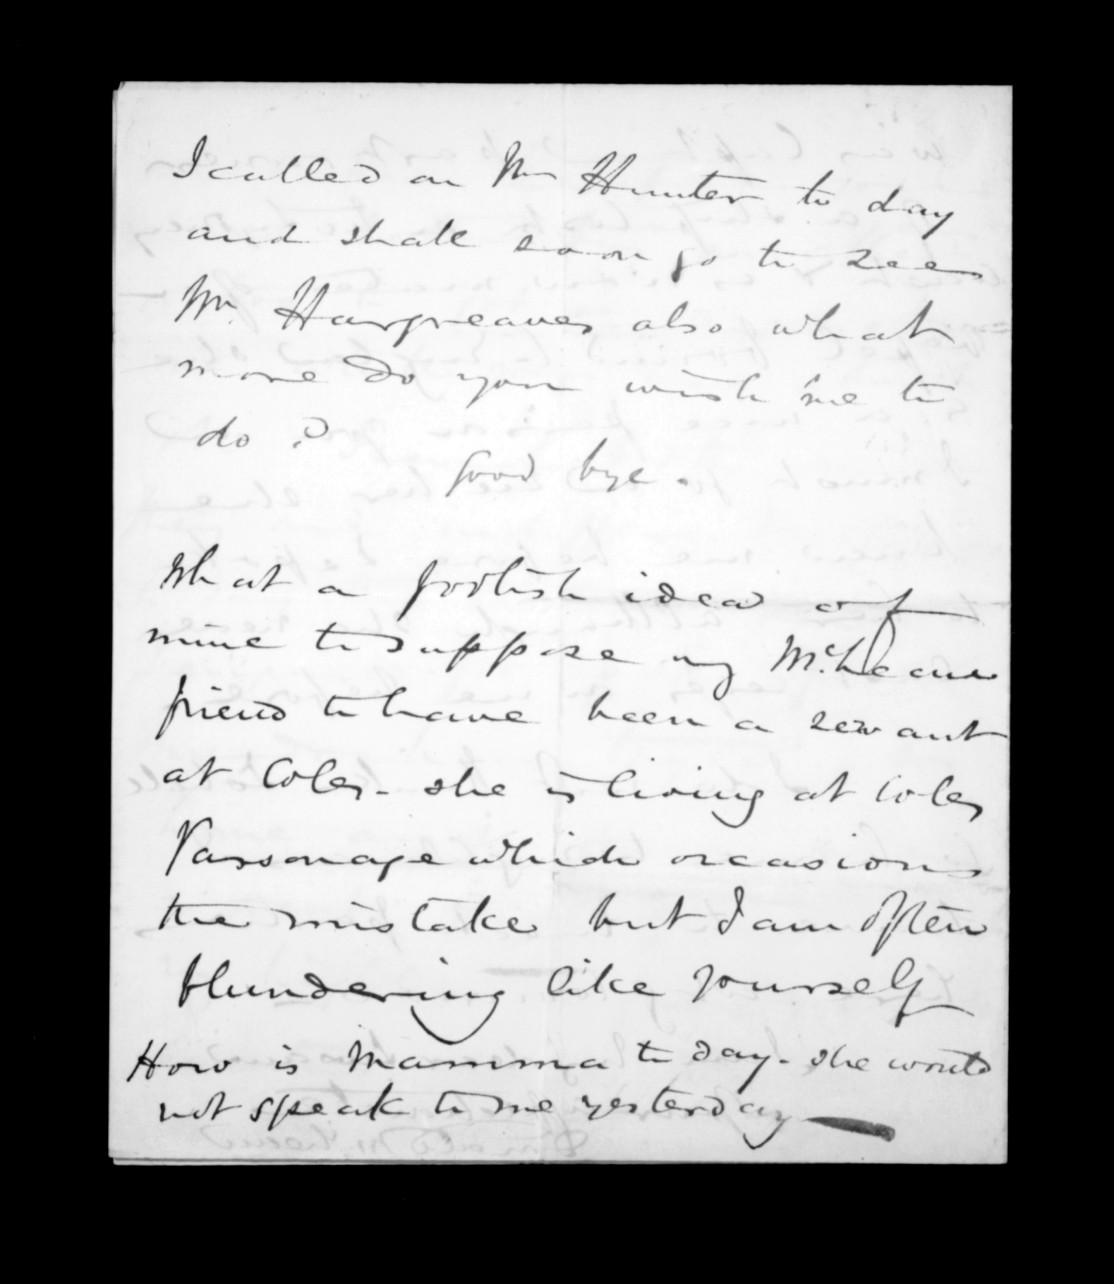 I called on Mr Hunter to day
and shall soon go to see
Mr. Hargreaves also what
more do you wish me to
do ?
Good bye.
What a foolish idea of
mine to suppose my McLean
friend to have been a servant
at Coles - she is living at Coles
Parsonage which occasions
the mistake but I am often
blundering like yourself
How is Mamma to day - she would
not speak to me yesterday